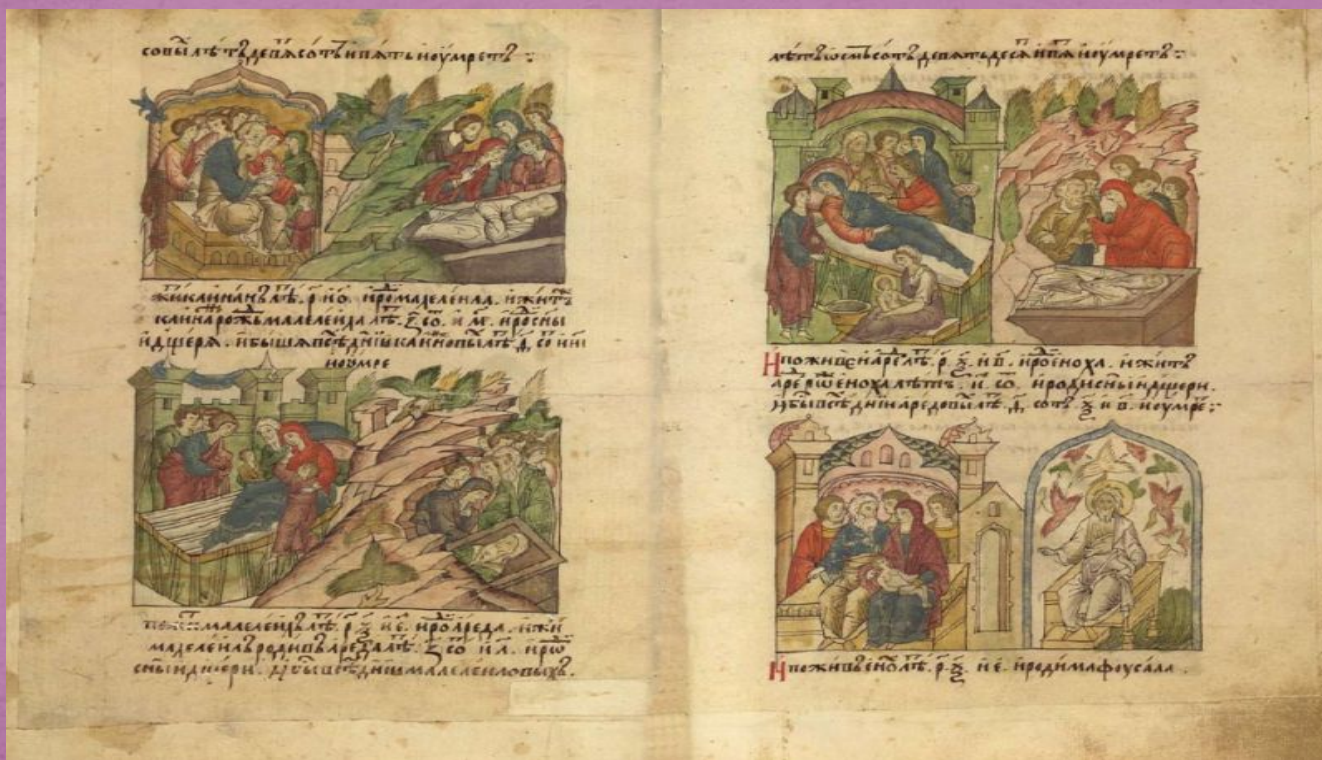 совы лѣтъ девѧсотъ и пѧть и оумретъ :
жи каинанъ лѣ. р҃ и о҃. и ро малелеила. и житъ
каина рожь малелеила лѣ. ҂з҃ со. и м҃. и ро сны
и дщерѧ. и бышѧ всѣ дні каиновы лѣ д҃. со и і҃
и оумре
малелеилъ лѣ. р҃ ѯ҃ и е҃. и ро ареда. и жи
малелеилъ родивъ ареда лѣ. з҃ со и л҃. и ро
сны и дщери. и бы всѣ дніи малелеиловыхъ.
лѣтъ осмь сотъ девѧтьдесѧ и пѧ и оумретъ :
И поживе аре лѣ. р҃. ѯ҃. и в҃. и ро еноха. и житъ
аре еноха лѣтъ. и҃. со. и роди сны и дщери.
и бы всѣ дніи аредовы лѣ. д҃. сотъ ѯ҃ и в҃. и оумре :
И поживъ ено лѣ. р҃. ѯ҃. и е҃. и роди мафоусала.